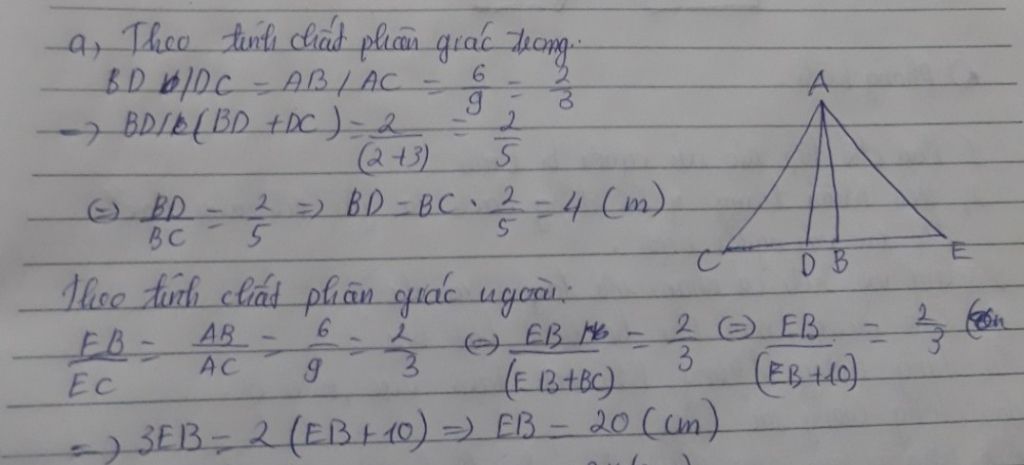 a, Theo tính chất phân giác trong:
BD /DC = AB / AC = 6/9 = 2/3
=> BD/(BD + DC) = 2/(2+3) = 2/5
<=> BD/BC = 2/5 => BD = BC . 2/5 = 4 (m)
A
C D B E
Theo tính chất phân giác ngoài:
EB/EC = AB/AC = 6/9 = 2/3 <=> EB/(EB+BC) = 2/3 <=> EB/(EB+10) = 2/3
=> 3EB = 2 (EB+10) => EB = 20 (cm)